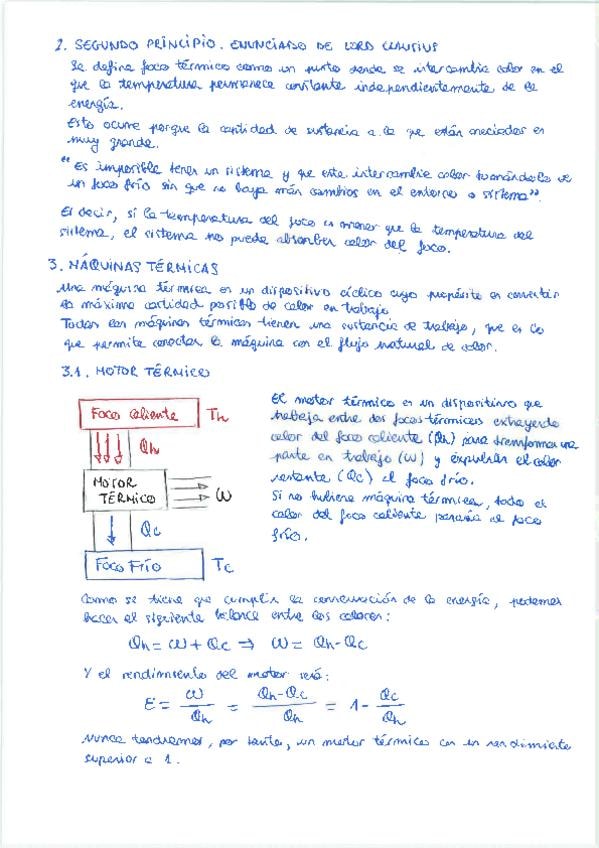 2. SEGUNDO PRINCIPIO. ENUNCIADO DE LORD CLAUSIUS
Se define foco térmico como un punto donde se intercambia calor en el
que la temperatura permanece constante independientemente de la
energía.
Esto ocurre porque la cantidad de sustancia a la que están asociados es
muy grande.
"Es imposible tener un sistema y que este intercambie calor tomándolo de
un foco frío sin que no haya más cambios en el entorno o sistema".
Es decir, si la temperatura del foco es menor que la temperatura del
sistema, el sistema no puede absorber calor del foco.
3. MÁQUINAS TÉRMICAS
Una máquina térmica es un dispositivo cíclico cuyo propósito es convertir
la máxima cantidad posible de calor en trabajo
Todas las máquinas térmicas tienen una sustancia de trabajo, que es lo
que permite conectar la máquina con el flujo natural de calor.
3.1. MOTOR TÉRMICO
Foco Caliente Th
Qh
MOTOR
TÉRMICO
W
Qc
Foco Frío Tc
El motor térmico es un dispositivo que
trabaja entre dos focos térmicos extrayendo
calor del foco caliente (Qh) para transformar una
parte en trabajo (W) y expulsar el calor
restante (Qc) al foco frío.
Si no hubiera máquina térmica, todo el
calor del foco caliente pasaría al foco
frío.
Como se tiene que cumplir la conservación de la energía, podemos
hacer el siguiente balance entre los calores:
Qh = W + Qc ⇒ W = Qh - Qc
Y el rendimiento del motor será:
E = W/Qh = Qh-Qc/Qh = 1 - Qc/Qh
Nunca tendremos, por tanto, un motor térmico con un rendimiento
superior a 1.